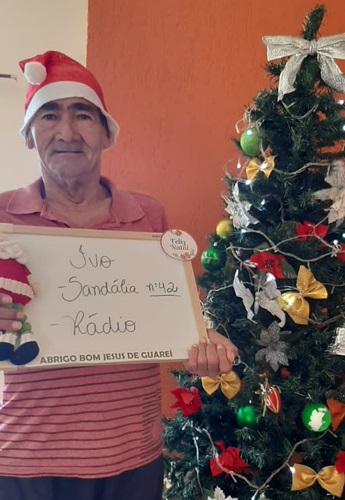 Ivo
Feliz
Natal
-Sandália nº 42
-Rádio
ABRIGO BOM JESUS DE GUAREÍ